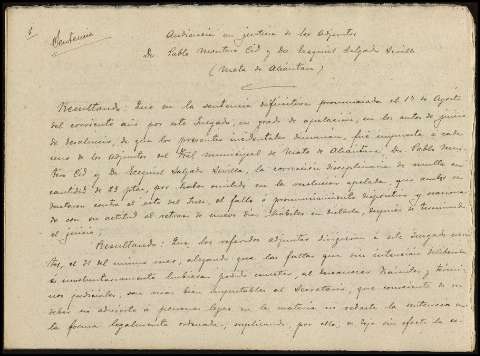 Sentencia
Audiencia en justicia de los Adjuntos
Dn Pablo Montero Cid y Dn Ezequiel Salgado Sevilla
(Mata de Alcántara)
Resultando: Que en la sentencia definitiva pronunciada el 17 de Agosto
del corriente año por este Juzgado, en grado de apelación, en los autos de juicio
de desahucio, de que las presentes incidentales dimanan, fué impuesta a cada
uno de los Adjuntos del Tbal municipal de Mata de Alcántara, Dn Pablo Mon-
tero Cid y Dn Ezequiel Salgado Sevilla, la corrección disciplinaria de multa en
cantidad de 25 ptas, por haber omitido en la resolución apelada, que ambos
contra el voto del Juez, el fallo o pronunciamiento dispositivo y
con su actitud al retraso de nueve días hábiles en dictarla, después de terminado
el juicio;
Resultando: Que los referidos adjuntos dirigieron a este Juzgado
el 31 del mismo mes, alegando que las faltas que sin intención deliberada
e involuntariamente hubieran podido cometer, al
judiciales, son mas bien imputables al Secretario, que consciente de su
deber no advirtió a personas legas en la materia no redactó la sentencia en
la forma legalmente ordenada, suplicando, por ello, se deje sin efecto la co-